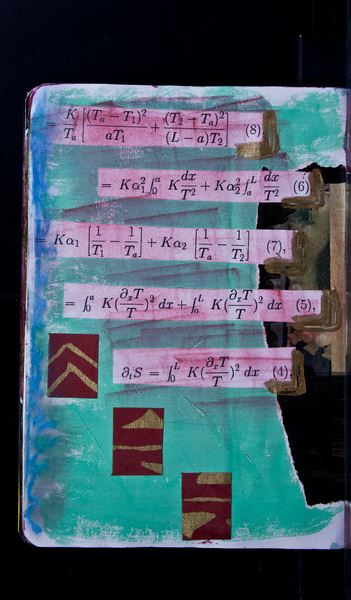 = \frac{K}{T_a} \left[ \frac{(T_a - T_1)^2}{aT_1} + \frac{(T_2 - T_a)^2}{(L - a)T_2} \right] (8)
= Kα_1^2 ∫_0^a K \frac{dx}{T^2} + Kα_2^2 ∫_a^L \frac{dx}{T^2} (6)
= Kα_1 \left[ \frac{1}{T_1} - \frac{1}{T_a} \right] + Kα_2 \left[ \frac{1}{T_a} - \frac{1}{T_2} \right] (7),
= ∫_0^a K(\frac{∂_xT}{T})^2 dx + ∫_a^L K(\frac{∂_xT}{T})^2 dx (5),
∂_tS = ∫_0^L K(\frac{∂_xT}{T})^2 dx (4),